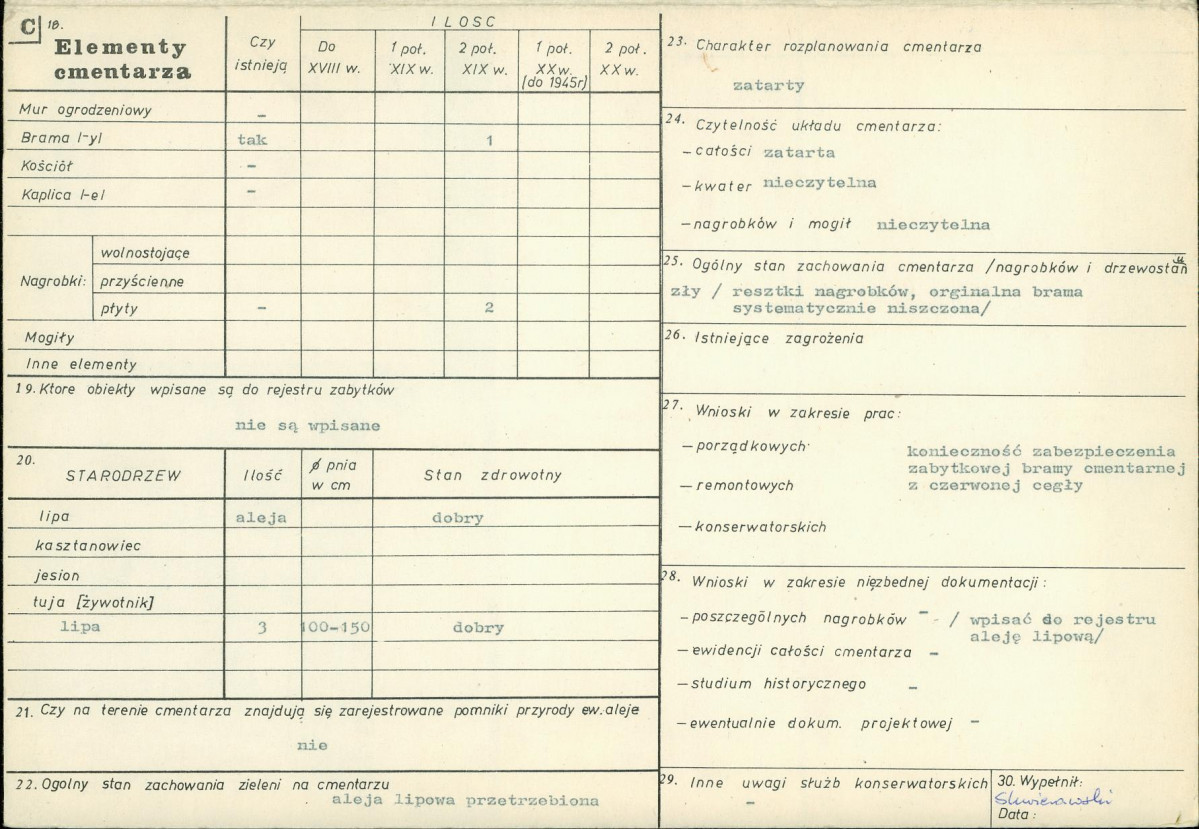 C 18.
Elementy cmentarza
Czy istnieją
ILOSC
Do XVIII w.
1 poł. XIX w.
2 poł. XIX w.
1 poł. XX w. (do 1945r)
2 poł. XX w.
Mur ogrodzeniowy –
Brama /-y/ tak 1
Kościół –
Kaplica /-e/ –
Nagrobki:
wolnostojące
przyścienne
płyty – 2
Mogiły
Inne elementy
19. Ktore obiekty wpisane są do rejestru zabytków
nie są wpisane
20.
STARODRZEW Ilość ø pnia w cm Stan zdrowotny
lipa aleja dobry
kasztanowiec
jesion
tuja [żywotnik]
lipa 3 100-150 dobry
21. Czy na terenie cmentarza znajdują się zarejestrowane pomniki przyrody ew. aleje
nie
22. Ogolny stan zachowania zieleni na cmentarzu
aleja lipowa przetrzebiona
23. Charakter rozplanowania cmentarza
zatarty
24. Czytelność układu cmentarza:
– całości zatarta
– kwater nieczytelna
– nagrobków i mogił nieczytelna
25. Ogólny stan zachowania cmentarza /nagrobków i drzewostanu
zły / resztki nagrobków, orginalna brama
systematycznie niszczona/
26. Istniejące zagrożenia
27. Wnioski w zakresie prac:
– porządkowych
– remontowych
– konserwatorskich
konieczność zabezpieczenia
zabytkowej bramy cmentarnej
z czerwonej cegły
28. Wnioski w zakresie nięzbednej dokumentacji:
– poszczególnych nagrobków – / wpisać do rejestru
aleję lipową/
– ewidencji całości cmentarza –
– studium historycznego –
– ewentualnie dokum. projektowej –
29. Inne uwagi służb konserwatorskich
–
30. Wypełnił:
Data: